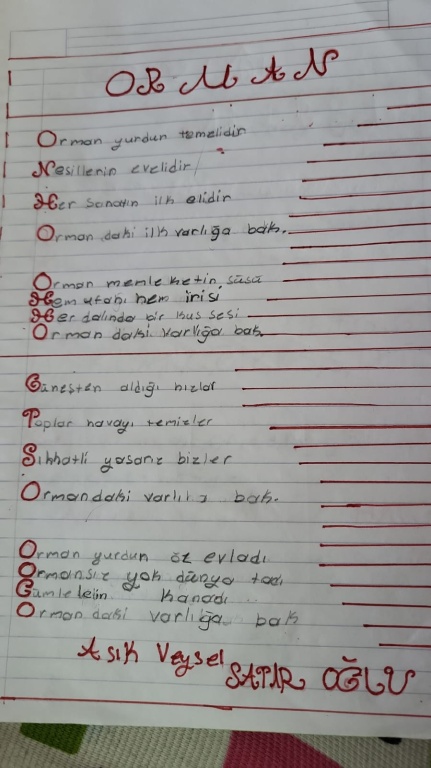 ORMAN
Orman yurdun temelidir
Nesillerin evelidir
Her sanatın ilk elidir
Orman daki ilk varlığa bak.
Orman memleketin süsü
Hem ufağı hem irisi
Her dalında bir kus sesi
Orman daki varlığa bak
Günesten aldığı hızlar
Toplar havayı temizler
Sıhhatli yasarız bizler
Ormandaki varlığa bak.
Orman yurdun öz evladı
Ormansız yok dünya tadı
kanadı
Orman daki varlığa bak
Asık Veysel
SATIR OĞLU